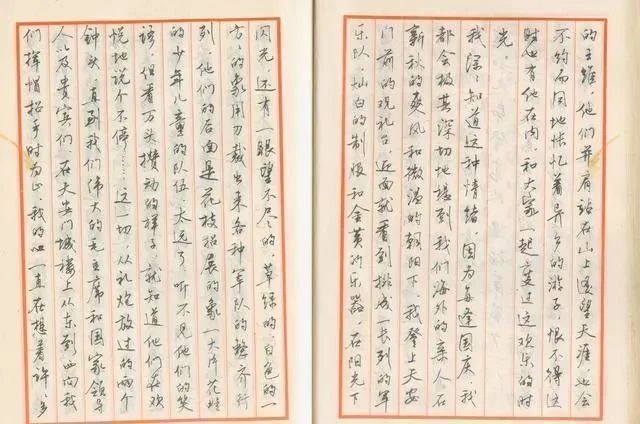 的王维，他们并肩站在山上遥望天涯，也会
不约而同地怀忆着异乡的游子，恨不得这
时也有他在内，和大家一起度过这欢乐的时
光。
我深深知道这种情绪，因为每逢国庆，我
都会极其深切地想到我们海外的亲人。在
新秋的爽风和微温的朝阳下，我登上天安
门前的观礼台，迎面就看到排成一长列的军
乐队，灿白的制服和金黄的乐器，在阳光下
闪光。还有一眼望不尽的，草绿的，白色的一
方方的象用刀裁出来各种军队的整齐行
列，他们的后面是花枝招展的象一大片花畦
的少年儿童的队伍，太远了，听不见他们的笑
语，但看万头攒动的样子，就知道他们在欢
悦地说个不停……这一切，从礼炮放过的两个
钟头，直到我们伟大的毛主席和国家领导
人以及贵宾们，在天安门城楼上从东到西向我
们挥帽招手时为止，我的心一直在想着许多